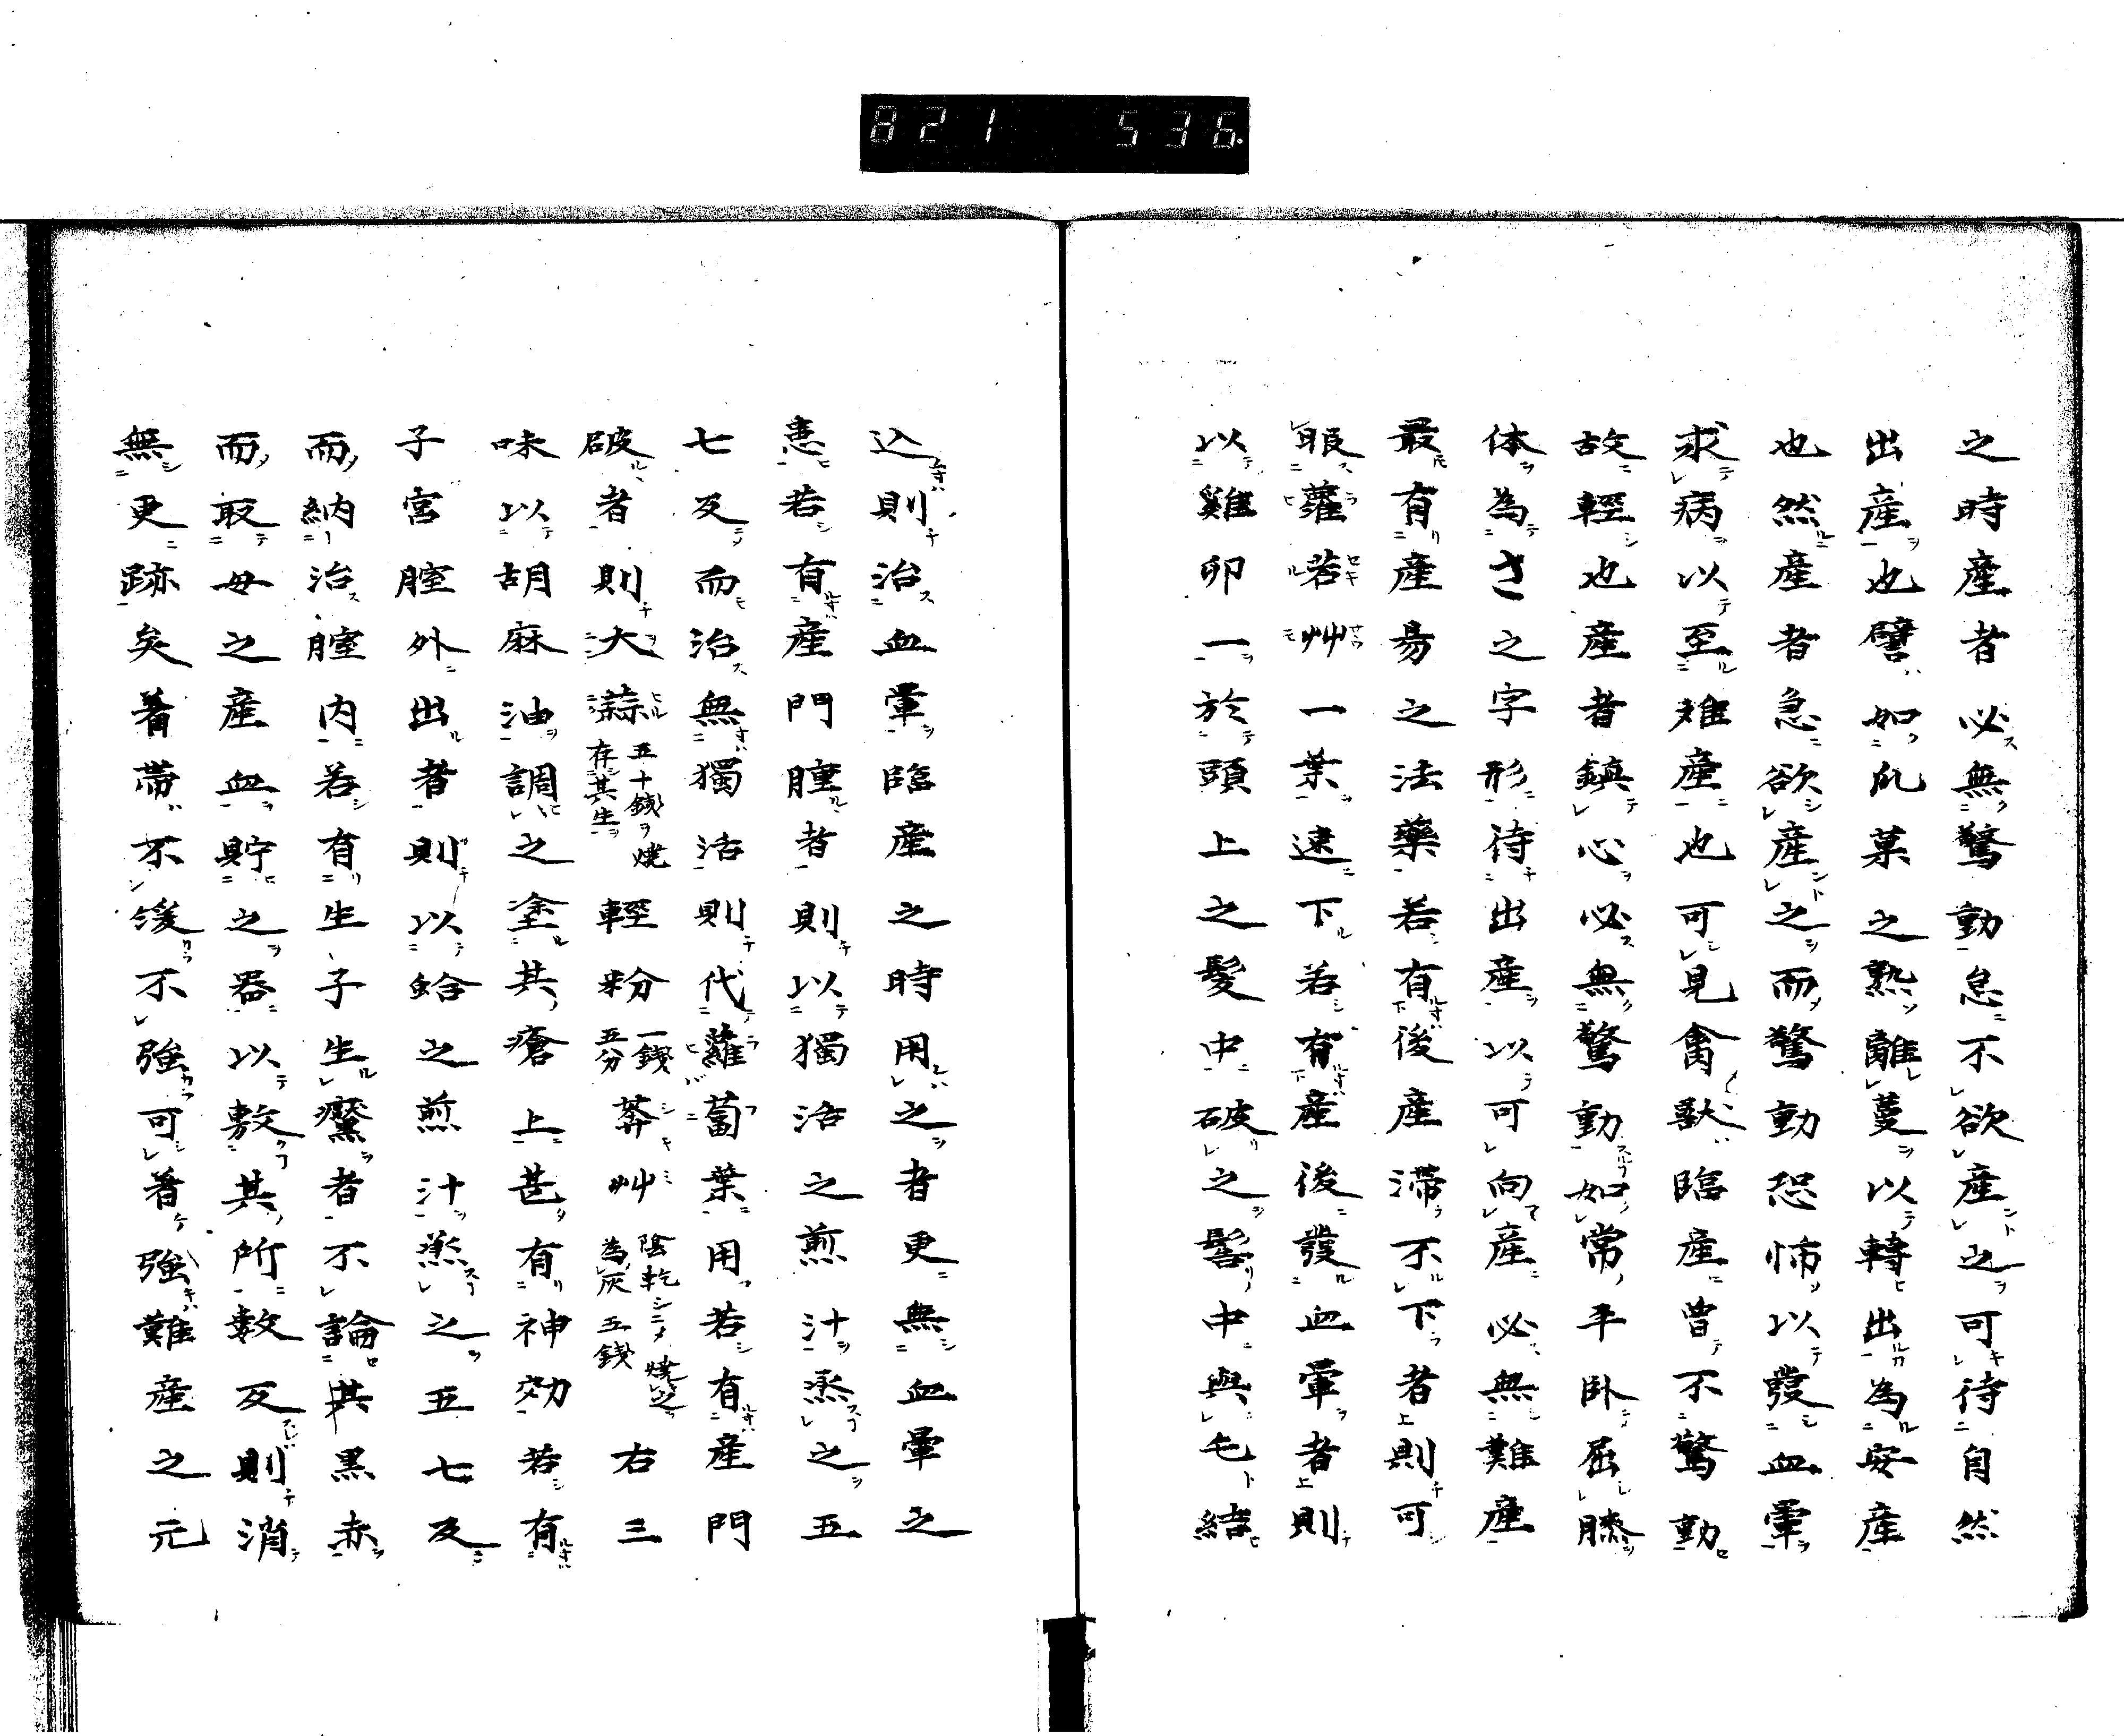 821 536.
之時産者必無驚動怠不欲産之可待自然
出産也譬如凡菓之熟離蔓以轉出為安産
也然産者急欲産之而驚動恐怖以發血暈
求病以至难産也可見禽獣臨産曽不驚動
故軽也産者鎮心必無驚動如常平卧屈膝
体為さ之字形待出産以可向産必無難産
最有産易之法藥若有後産滞不下者則可
服蘿若艸一葉逮下若有産後發血暈者則
以雞卯一於頭上之髪中破之髻中與毛結
込則治血暈臨産之時用之者更無血暈之
患若有産門腫者則以獨活之煎汁蒸之五
七反而治無獨活則代蘿蔔葉用若有産門
破者則大蒜五十銭ヲ焼存其生ヲ軽粉一銭五分莽艸陰乾シテ焼之為灰五銭右三
味以胡麻油調之塗其瘡上甚有神効若有
子宮膣外出者則以蛤之煎汁蒸之五七反
而納治膣内若有生子生癦者不論其黒赤
而取母之産血貯之器以敷其所数反則消
無更跡矣着帯不緩不強可着強難産之元